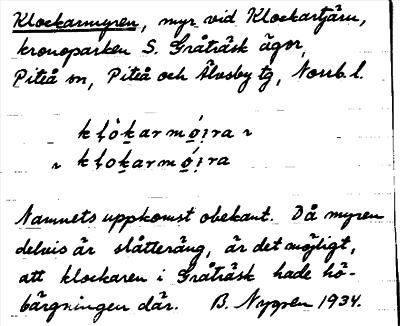 Klockarmyren, myr vid Klockartjärn,
kronoparken S. Gråträsk ägor,
Piteå sn, Piteå och Älvsby tg, Norrb. l.
klȯkarmóira
klokarmóira
Namnets uppkomst obekant. Då myren
delvis är slåtteräng, är det möjligt,
att klockaren i Gråträsk hade hö-
bärgningen där. B. Nygren 1934.